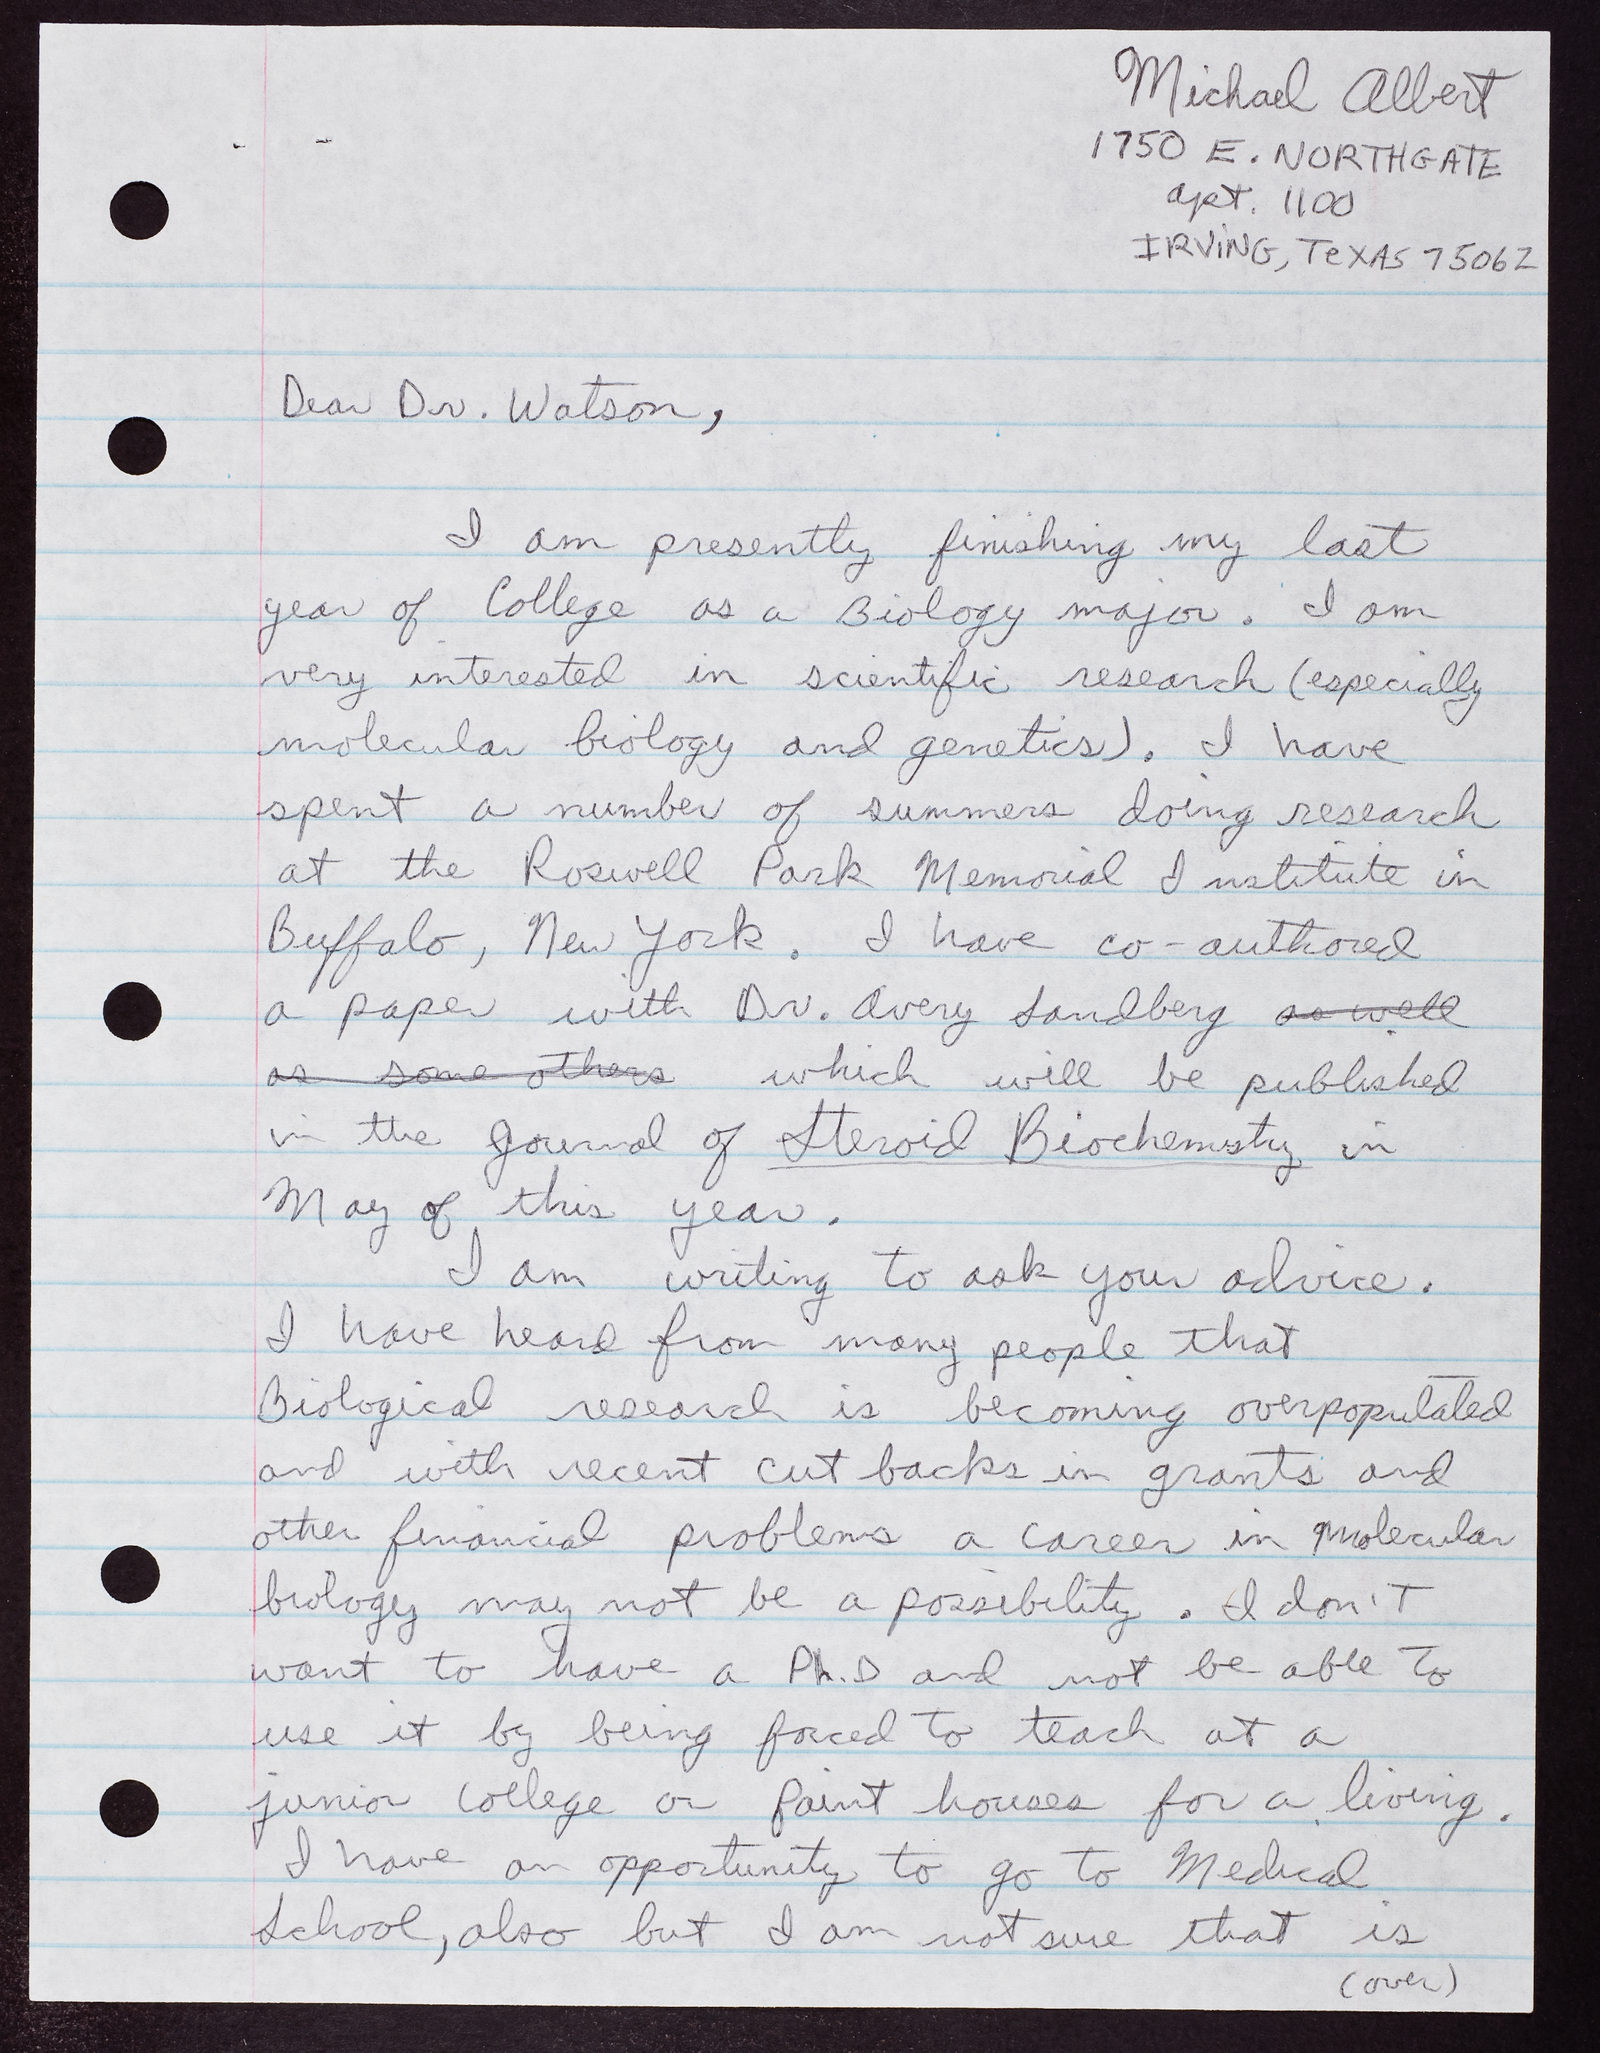 Michael Albert
1750 E. NORTHGATE
apt. 1100
IRVING, TEXAS 75062
Dear Dr. Watson,
I am presently finishing my last
year of College as a Biology major. I am
very interested in scientific research (especially
molecular biology and genetics). I have
spent a number of summers doing research
at the Roswell Park Memorial Institute in
Buffalo, New York. I have co-authored
a paper with Dr. Avery Sandberg as well
as some others which will be published
in the Journal of Steroid Biochemistry in
May of this year.
I am writing to ask your advice.
I have heard from many people that
Biological research is becoming overpopulated
and with recent cut backs in grants and
other financial problems a career in molecular
biology may not be a possibility. I don't
want to have a Ph.D and not be able to
use it by being forced to teach at a
junior college or paint houses for a living.
I have an opportunity to go to Medical
School, also but I am not sure that is
(over)